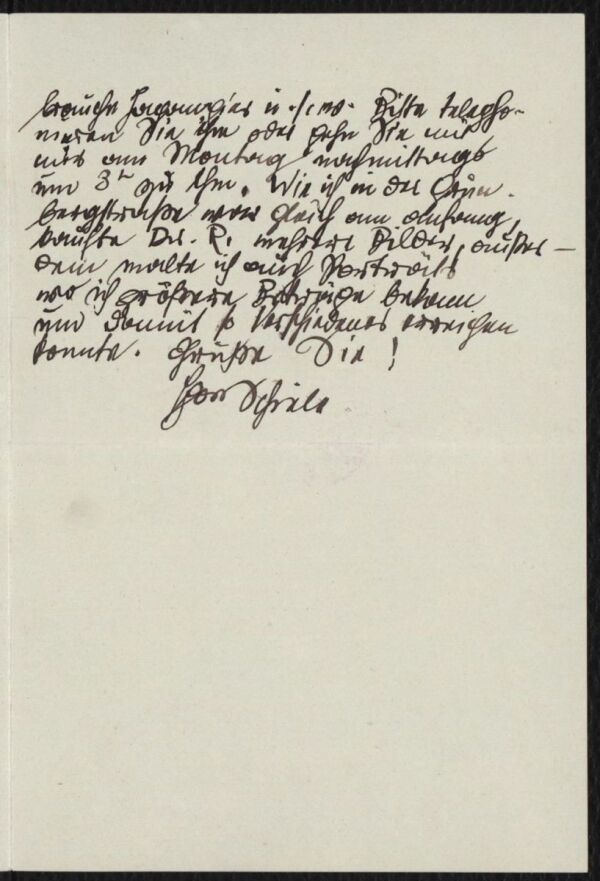 brauche u.s.w. Bitte telepho-
nieren Sie ihm oder gehn Sie mit
mir am Montag nachmittags
um 3h zu ihm. Wie ich in der Grün-
bergstraße war gleich am Anfang,
kaufte Dr. R. mehrere Bilder, außer-
dem malte ich auch Porträts
wo ich größere Beträge bekam
und damit so Verschiedenes erreichen
konnte. Grüße Sie!
Schiele